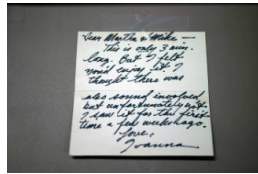 Dear Martha & Mike
This is only 3 min.
long. But I felt
you'd enjoy it. I
thought there was
also sound involved
but unfortunately not
I saw it for the first
time a few weeks ago.
Love,
Ivanna